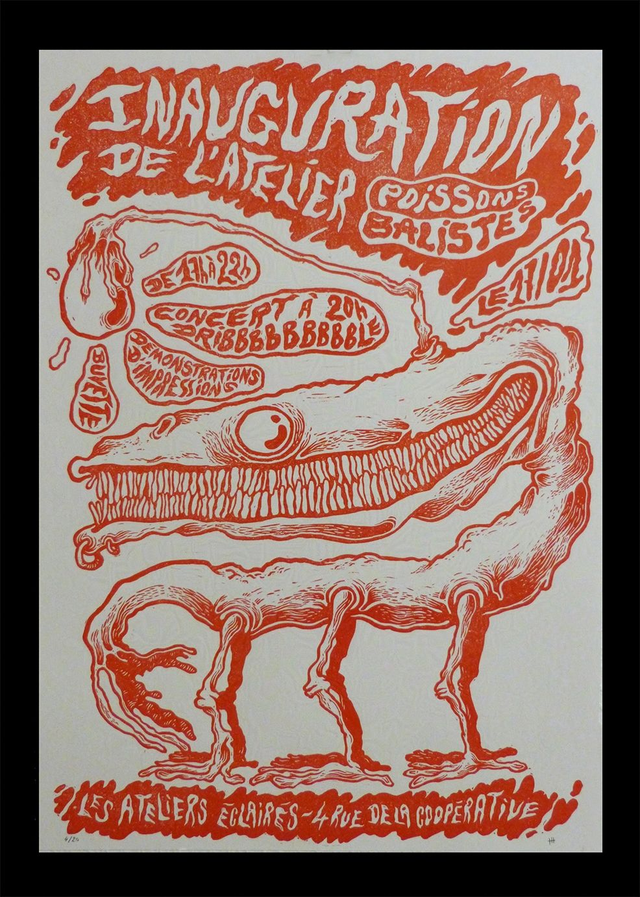 INAUGURATION
DE L'ATELIER
POISSONS
BALISTES
LE 17/01
DE 17h À 22h
CONCERT À 20h
DRIBBBBBBBBBLE
DEMONSTRATIONS
D'IMPRESSIONS
BUVETTE
LES ATELIERS ÉCLAIRÉS - 4 RUE DE LA COOPERATIVE
4/20